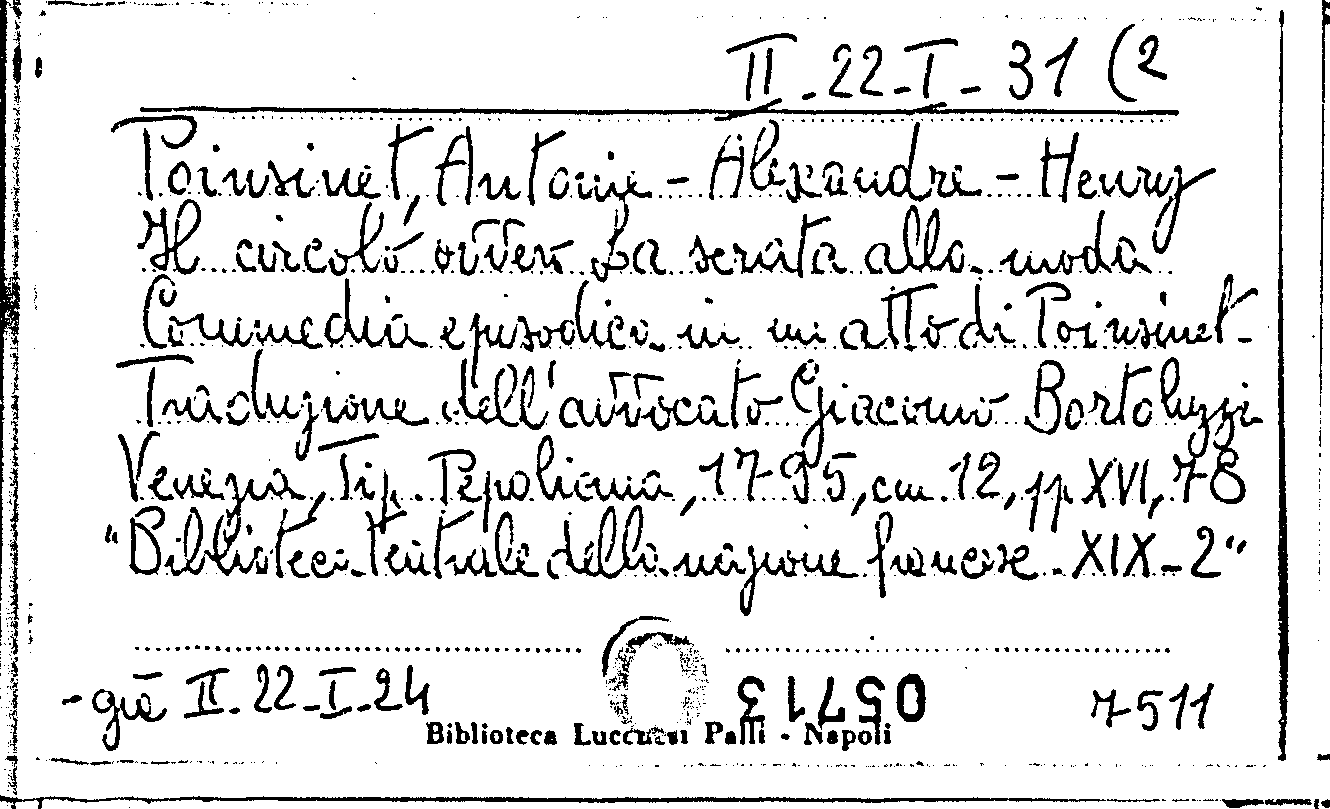 II-22-I-31 (2
Poinsinet, Antoine-Alexandre-Henry
Il circolo ovvero La serata alla moda
Commedia episodica in un atto di Poinsinet-
Traduzione dell'avvocato Giacomo Bortoluzzi
Venezia, Tip. Pepoliana, 1795, cm. 12, pp. XVI, 78
"Biblioteca teatrale della nazione francese-XIX-2"
- già II-22-I-24
05713
7511
Biblioteca Lucchesi Palli - Napoli